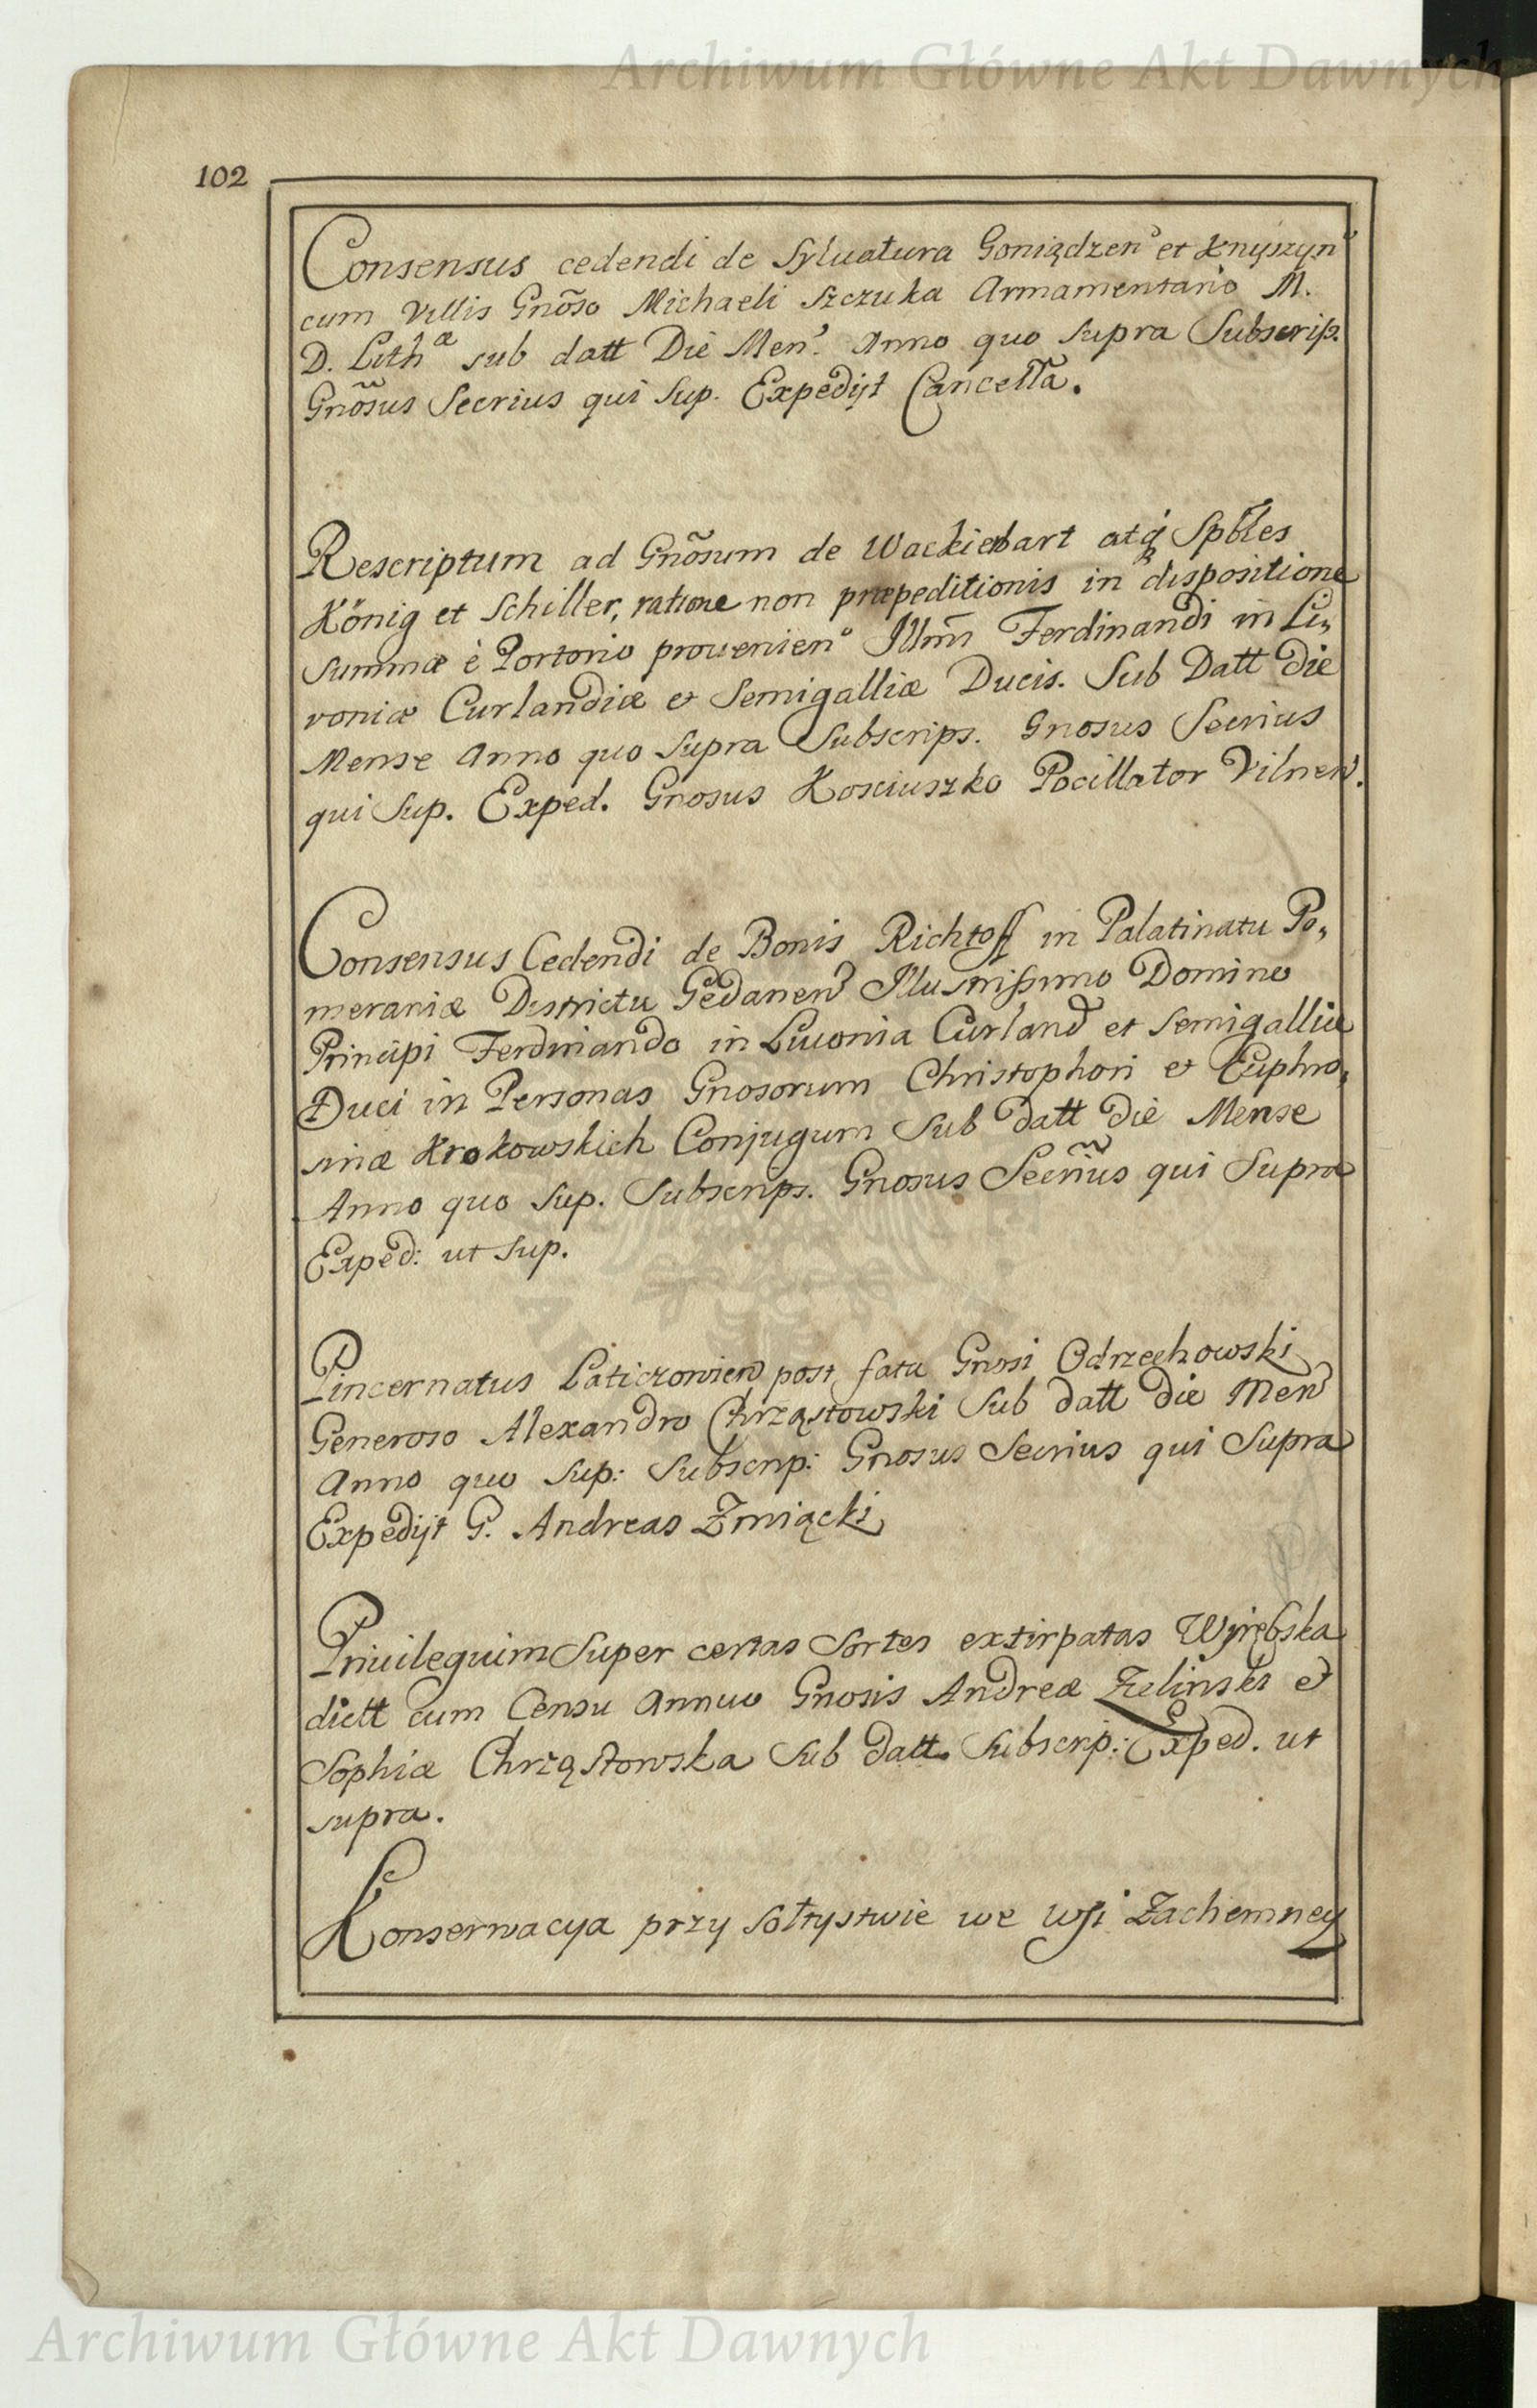 Archiwum Główne Akt Dawnych
102
Consensus cedendi de Sylvatura Goniądzen et Knyszyn
cum Villis Gnõso Michaeli Szczuka Armamentario M.
D. Lith æ sub datt Die Men. Anno quo supra Subscrip.
Gnõsus Secrius qui Sup. Expedijt Cancellã.
Rescriptum ad Gnõsum de Wackiebart atq Spbles
König et Schiller, ratione non præpeditionis in dispositione
summæ è Portorio provenien Illmi Ferdinandi in Li„
voniæ Curlandiæ et Semigalliæ Ducis. Sub Datt Die
Mense Anno quo Supra Subscrips. Gnosus Secrius
qui Sup. Exped. Gnosus Kosciuszko Pocillator Vilnen.
Consensus Cedendi de Bonis Richtoff in Palatinatu Po„
meraniæ Districtu Gedanen Illustrissimo Domino
Principi Ferdinando in Livonia Curland et Semigalliæ
Duci in Personas Gnosorum Christophori et Euphro„
sinæ Krokowskich Conjugum Sub datt die Mense
Anno quo Sup. Subscrips. Gnosus Secrius qui Supra
Exped: ut Sup.
Pincernatus Laticzovien post fata Gnosi Odrzechowski
Generoso Alexandro Chrząstowski Sub datt die Men
Anno quo Sup: Subscrip: Gnosus Secrius qui Supra
Expedijt G. Andreas Żmiącki
Privilegium Super certas Sortes extirpatas Wyrębska
dictt cum Censu Annuo Gnosis Andreæ Zielinski et
Sophiæ Chrząstowska Sub datt. Subscrip: Exped. ut
supra.
Konserwacya przy Sołtystwie we Wsi Zachemney
Archiwum Główne Akt Dawnych